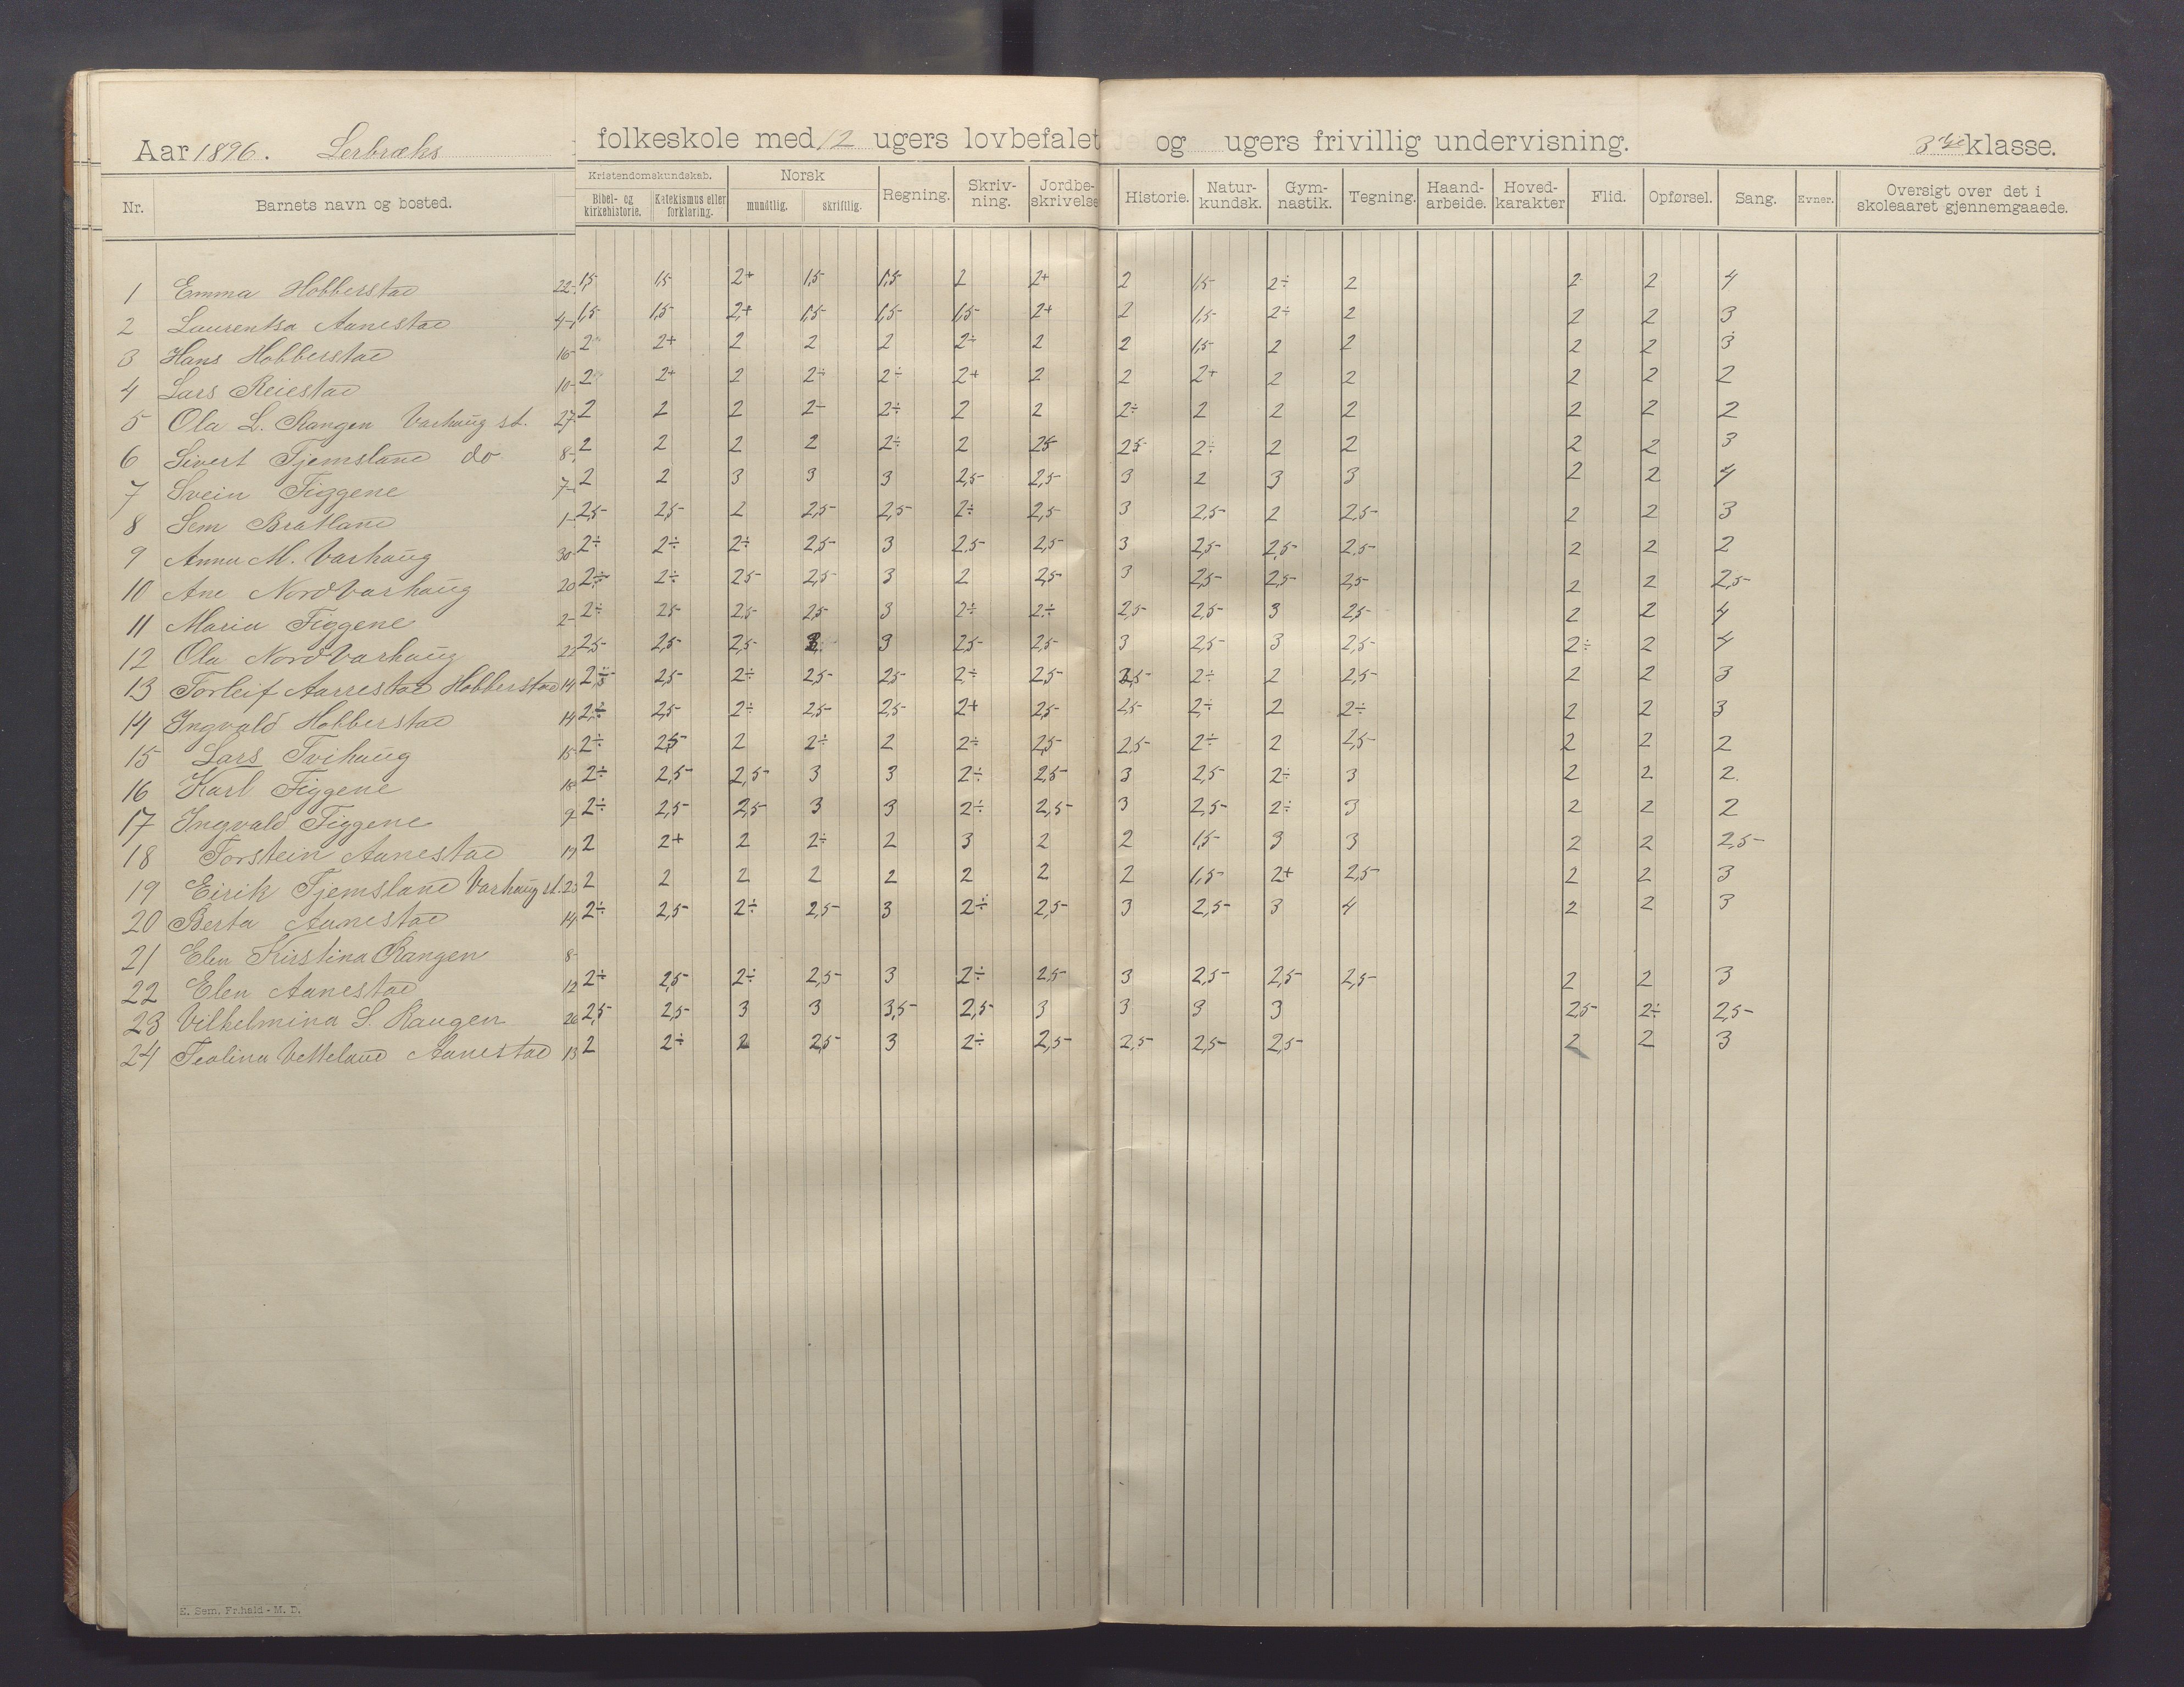 Aar 1896. Lerbræks folkeskole med 12 ugers lovbefalet og ugers frivillig undervisning. 3dje klasse.
Nr. Barnets navn og bosted. Kristendomskundskab. Bibel- og kirkehistorie. Katekismus eller forklaring. Norsk mundtlig. skriftlig. Regning. Skriv-ning. Jordbe-skrivelse Historie. Natur-kundsk. Gym-nastik. Tegning. Haand-arbeide. Hoved-karakter Flid. Opførsel. Sang. Evner. Oversigt over det i skoleaaret gjennemgaaede.
1 Emma Hobberstad 22- 1,5- 1,5- 2+ 1,5- 1,5- 2 2+ 2 1,5- 2÷ 2 2 2 4
2 Laurentsa Aanestad 4- 1,5- 1,5- 2+ 1,5- 1,5- 1,5- 2+ 2 1,5- 2÷ 2 2 2 3
3 Hans Hobberstad 16- 2 2+ 2 2 2 2÷ 2 2 1,5- 2 2 2 2 3
4 Lars Reiestad 10- 2 2+ 2 2÷ 2÷ 2+ 2 2 2+ 2 2 2 2 2
5 Ola L. Rangen Varhaug st. 27- 2 2 2 2- 2÷ 2 2 2÷ 2 2 2 2 2 2
6 Sivert Tjemsland do 8- 2 2 2 2 2÷ 2 2,5- 2,5- 2÷ 2 2 2 2 3
7 Svein Figgene 7- 2 2 3 3 3 2,5- 2,5- 3 2 3 3 2 2 4
8 Sem Bratland 1- 2,5- 2,5- 2 2,5- 2,5- 2÷ 2,5- 3 2,5- 2 2,5- 2 2 3
9 Anna M. Varhaug 30- 2÷ 2÷ 2÷ 2,5- 3 2,5- 2,5- 3 2,5- 2,5- 2,5- 2 2 2
10 Ane Nordvarhaug 20 2÷ 2÷ 2,5- 2,5- 3 2 2,5- 3 2,5- 2,5- 2,5- 2 2 2,5-
11 Maria Figgene 2- 2÷ 2,5- 2,5- 2,5- 3 2÷ 2÷ 2,5- 2,5- 3 2,5- 2 2 4
12 Ola Nordvarhaug 22 2,5- 2,5- 2,5- 3 3 2,5- 2,5- 3 2,5- 3 2,5- 2÷ 2 4
13 Torleif Aarrestad Hobberstad 14 2,5- 2,5- 2÷ 2,5- 2,5- 2÷ 2,5- 2,5- 2÷ 2 2,5- 2 2 3
14 Ingvald Hobberstad 14 2÷ 2,5- 2÷ 2,5- 2,5- 2+ 2,5- 2,5- 2÷ 2 2÷ 2 2 3
15 Lars Tvihaug 15- 2÷ 2,5- 2 2÷ 2 2÷ 2,5- 2,5- 2÷ 2 2,5- 2 2 2
16 Karl Figgene 2÷ 2,5- 2,5- 3 3 2÷ 2,5- 3 2,5- 2÷ 3 2 2 2
17 Ingvald Figgene 9 2÷ 2,5- 2,5- 3 3 2÷ 2,5- 3 2,5- 2÷ 3 2 2 2
18 Torstein Aanestad 2 2+ 2 2÷ 2 3 2 2 1,5- 3 3 2 2 2,5-
19 Eirik Tjemsland Varhaug st. 2 2 2 2 2 2 2 2 1,5- 2+ 2,5- 2 2 3
20 Berta Aanestad 14 2÷ 2,5- 2÷ 2,5- 3 2÷ 2,5- 3 2,5- 3 4 2 2 3
21 Elen Kirstina Rangen 8-
22 Elen Aanestad 12 2÷ 2,5- 2÷ 2,5- 3 2÷ 2,5- 3 2,5- 2,5- 2,5- 2 2 3
23 Vilhelmina S. Rangen 26 2,5- 2,5- 3 3 3,5- 2,5- 3 3 3 3 2,5- 2÷ 2,5-
24 Teolina Vetteland Aanestad 13 2 2÷ 2 2,5- 3 2÷ 2,5- 2,5- 2,5- 2,5- 2 2 3
E. Sem, Fr.hald - M. D.